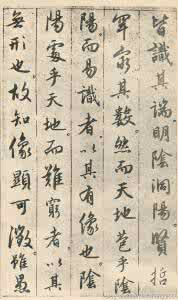 皆識其端明陰洞陽賢哲
罕窮其數然而天地苞乎陰
陽而易識者以其有像也陰
陽處乎天地而難窮者以其
無形也故知像顯可徵雖愚